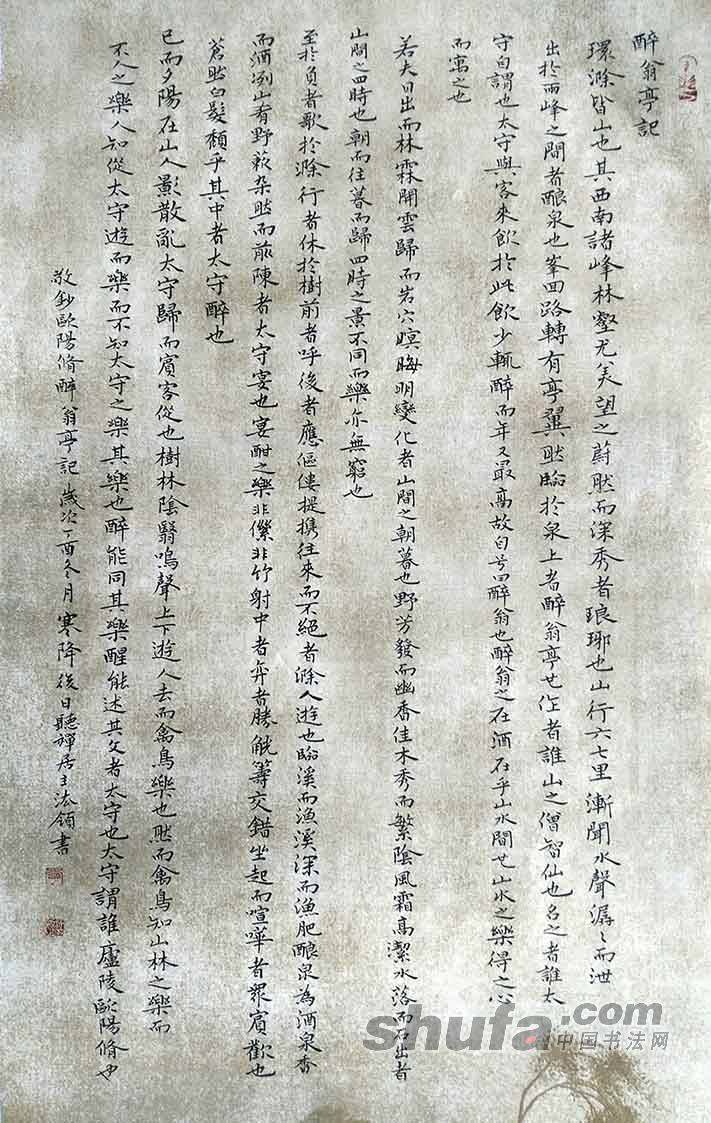 醉翁亭記
環滁皆山也其西南諸峰林壑尤美望之蔚然而深秀者琅琊也山行六七里漸聞水聲潺〻而泄
出於兩峰之間者釀泉也峯回路轉有亭翼然臨於泉上者醉翁亭也作者誰山之僧智仙也名之者誰太
守自謂也太守與客來飲於此飲少輒醉而年又最高故自号曰醉翁也醉翁之在酒在乎山水間也山水之樂得之心
而寓之也
若夫日出而林霏開雲歸而岩穴暝晦明變化者山間之朝暮也野芳發而幽香佳木秀而繁陰風霜高潔水落而石出者
山間之四時也朝而往暮而歸四時之景不同而樂亦無窮也
至於負者歌於滁行者休於樹前者呼後者應傴僂提携往來而不絕者滁人遊也臨溪而漁溪深而漁肥釀泉為酒泉香
而酒冽山肴野蔌杂然而前陳者太守宴也宴酣之樂非儝非竹射中者弈者勝觥籌交錯坐起而喧嘩者眾賓歡也
蒼然白髮頹乎其中者太守醉也
已而夕陽在山人影散亂太守歸而賓客從也樹林陰翳鳴聲上下遊人去而禽鳥樂也然而禽鳥知山林之樂而
不人之樂人知從太守遊而樂而不知太守之樂其樂也醉能同其樂醒能述其文者太守也太守謂誰廬陵歐陽脩也
敬鈔歐陽脩醉翁亭記歲次丁酉冬月寒降後日聽禪居主法領書
shufa.com
中国书法网